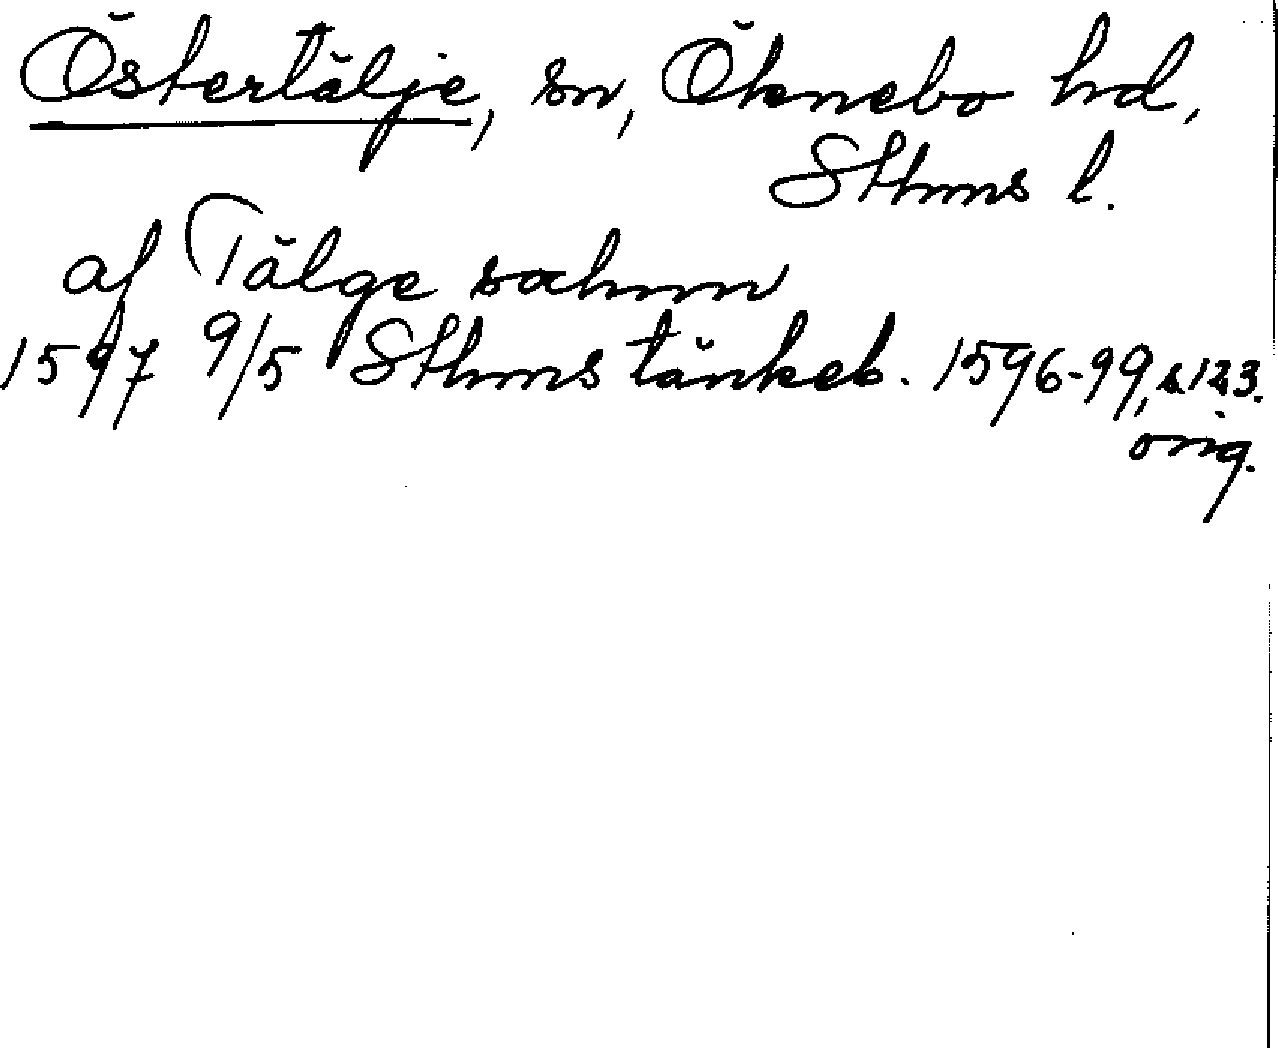 Östertälje, sn, Öknebo hd,
Sthms l.
af Tälge sahnn
1597 9/5 Sthms tänkeb. 1596-99, s. 123.
orig.